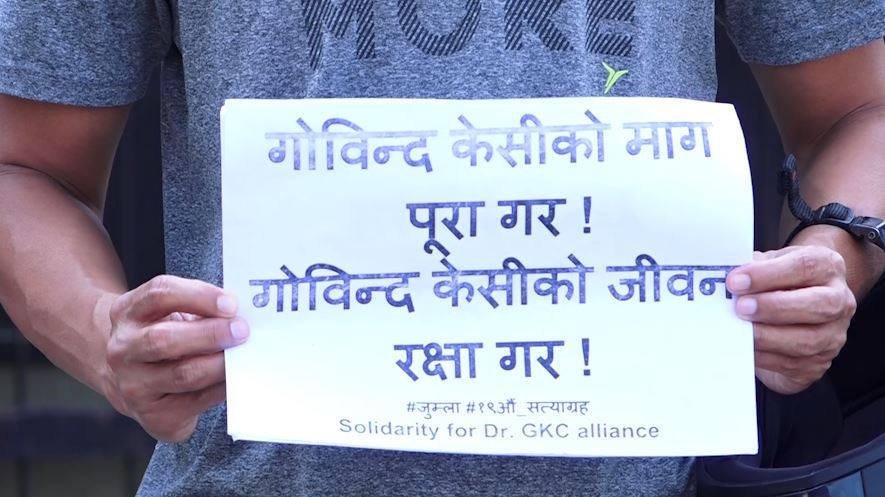 MORE
गोविन्द केसीको माग
पूरा गर !
गोविन्द केसीको जीवन
रक्षा गर !
#जुम्ला #१९औं_सत्याग्रह
Solidarity for Dr. GKC alliance